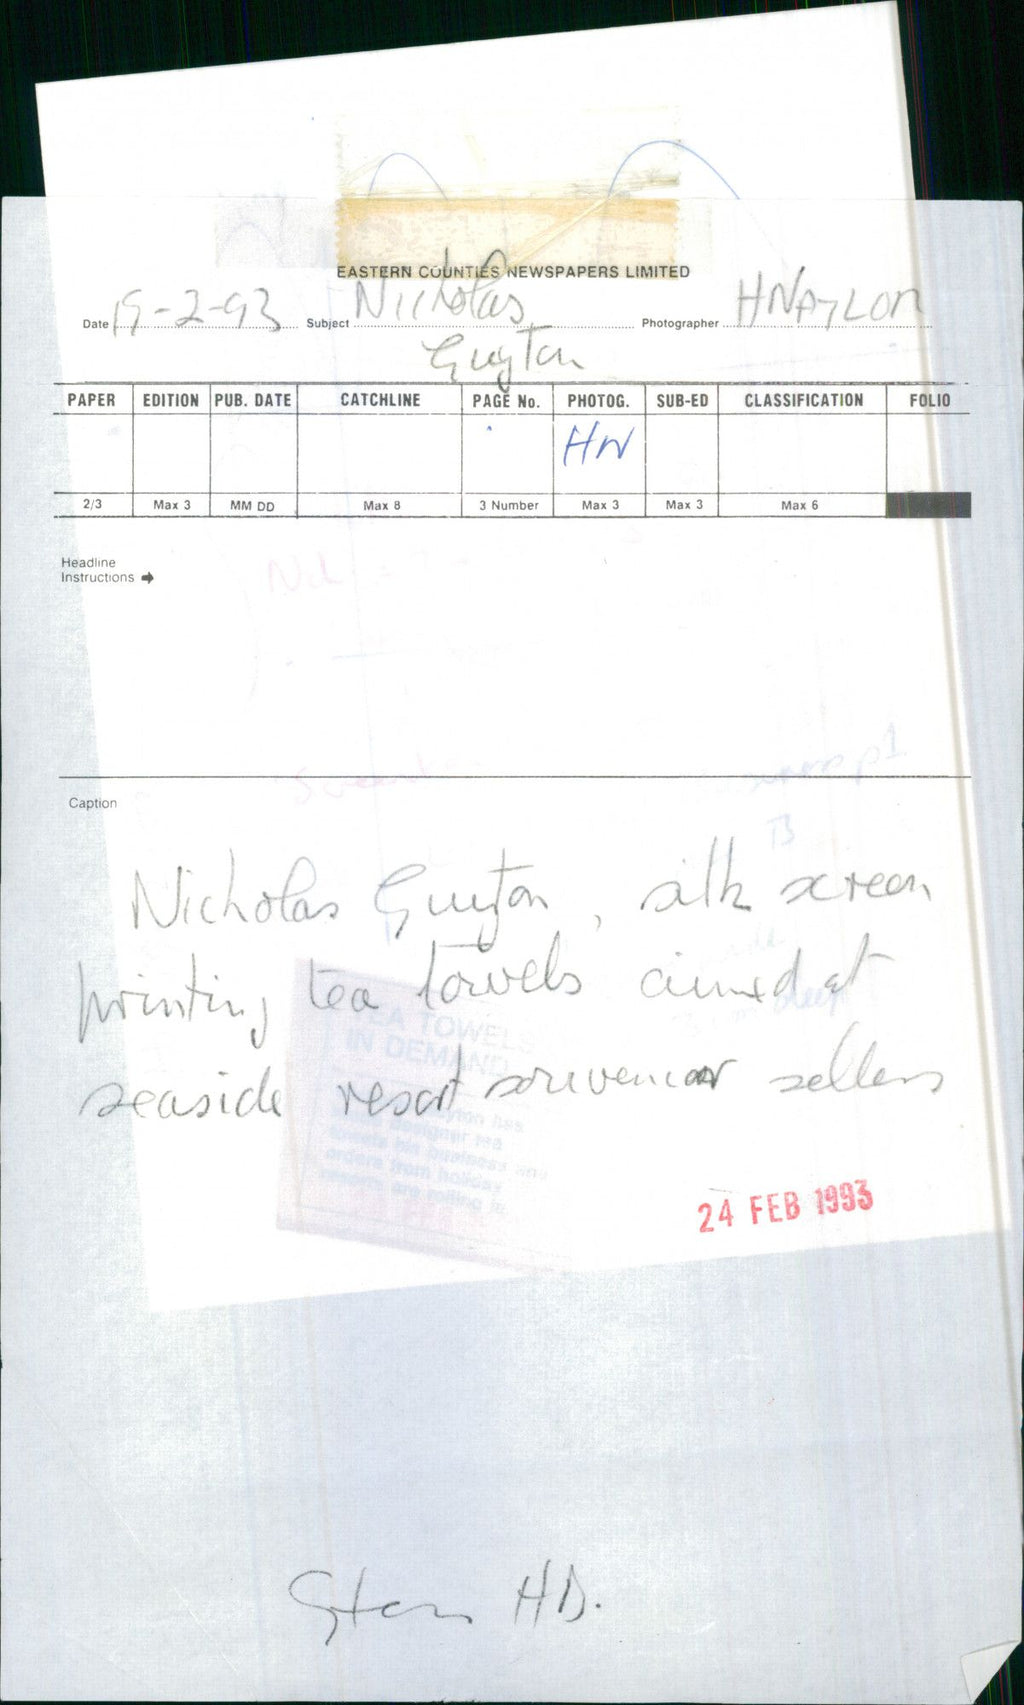 EASTERN COUNTIES NEWSPAPERS LIMITED
Date 19-2-93 Subject Nicholas Photographer HNAYLOR
Guyton
PAPER EDITION PUB. DATE CATCHLINE PAGE No. PHOTOG. SUB-ED CLASSIFICATION FOLIO
HN
2/3 Max 3 MM DD Max 8 3 Number Max 3 Max 3 Max 6
Headline
Instructions
Caption
Nicholas Guyton, silk screen
printing tea towels aimed at
seaside resort souvenir sellers
TEA TOWELS
IN DEMAND
orders from holiday
resorts are rolling in
24 FEB 1993
HB.